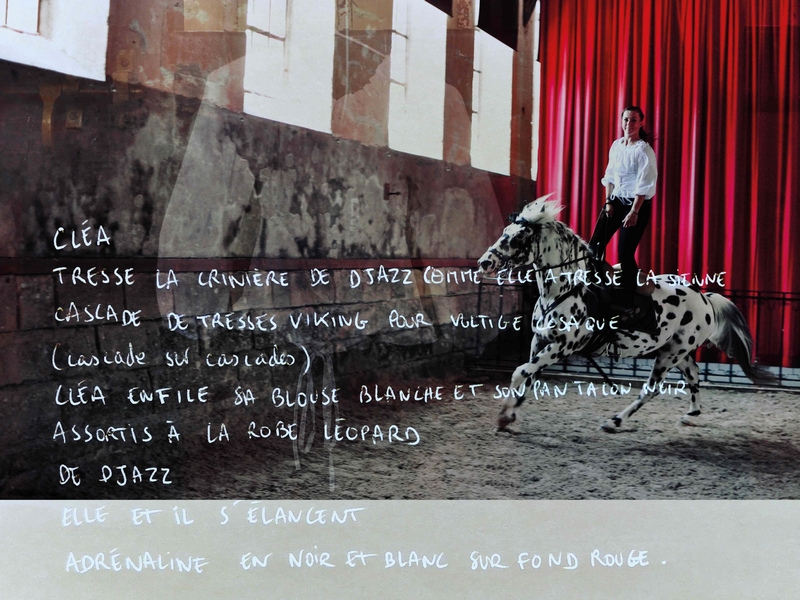 CLÉA
TRESSE LA CRINIÈRE DE DJAZZ COMME ELLE A TRESSÉ LA SIENNE
CASCADE DE TRESSES VIKING POUR VOLTIGE COSAQUE
(cascade sur cascades)
CLÉA ENFILE SA BLOUSE BLANCHE ET SON PANTALON NOIR
ASSORTIS À LA ROBE LÉOPARD
DE DJAZZ
ELLE ET IL S'ÉLANCENT
ADRÉNALINE EN NOIR ET BLANC SUR FOND ROUGE.